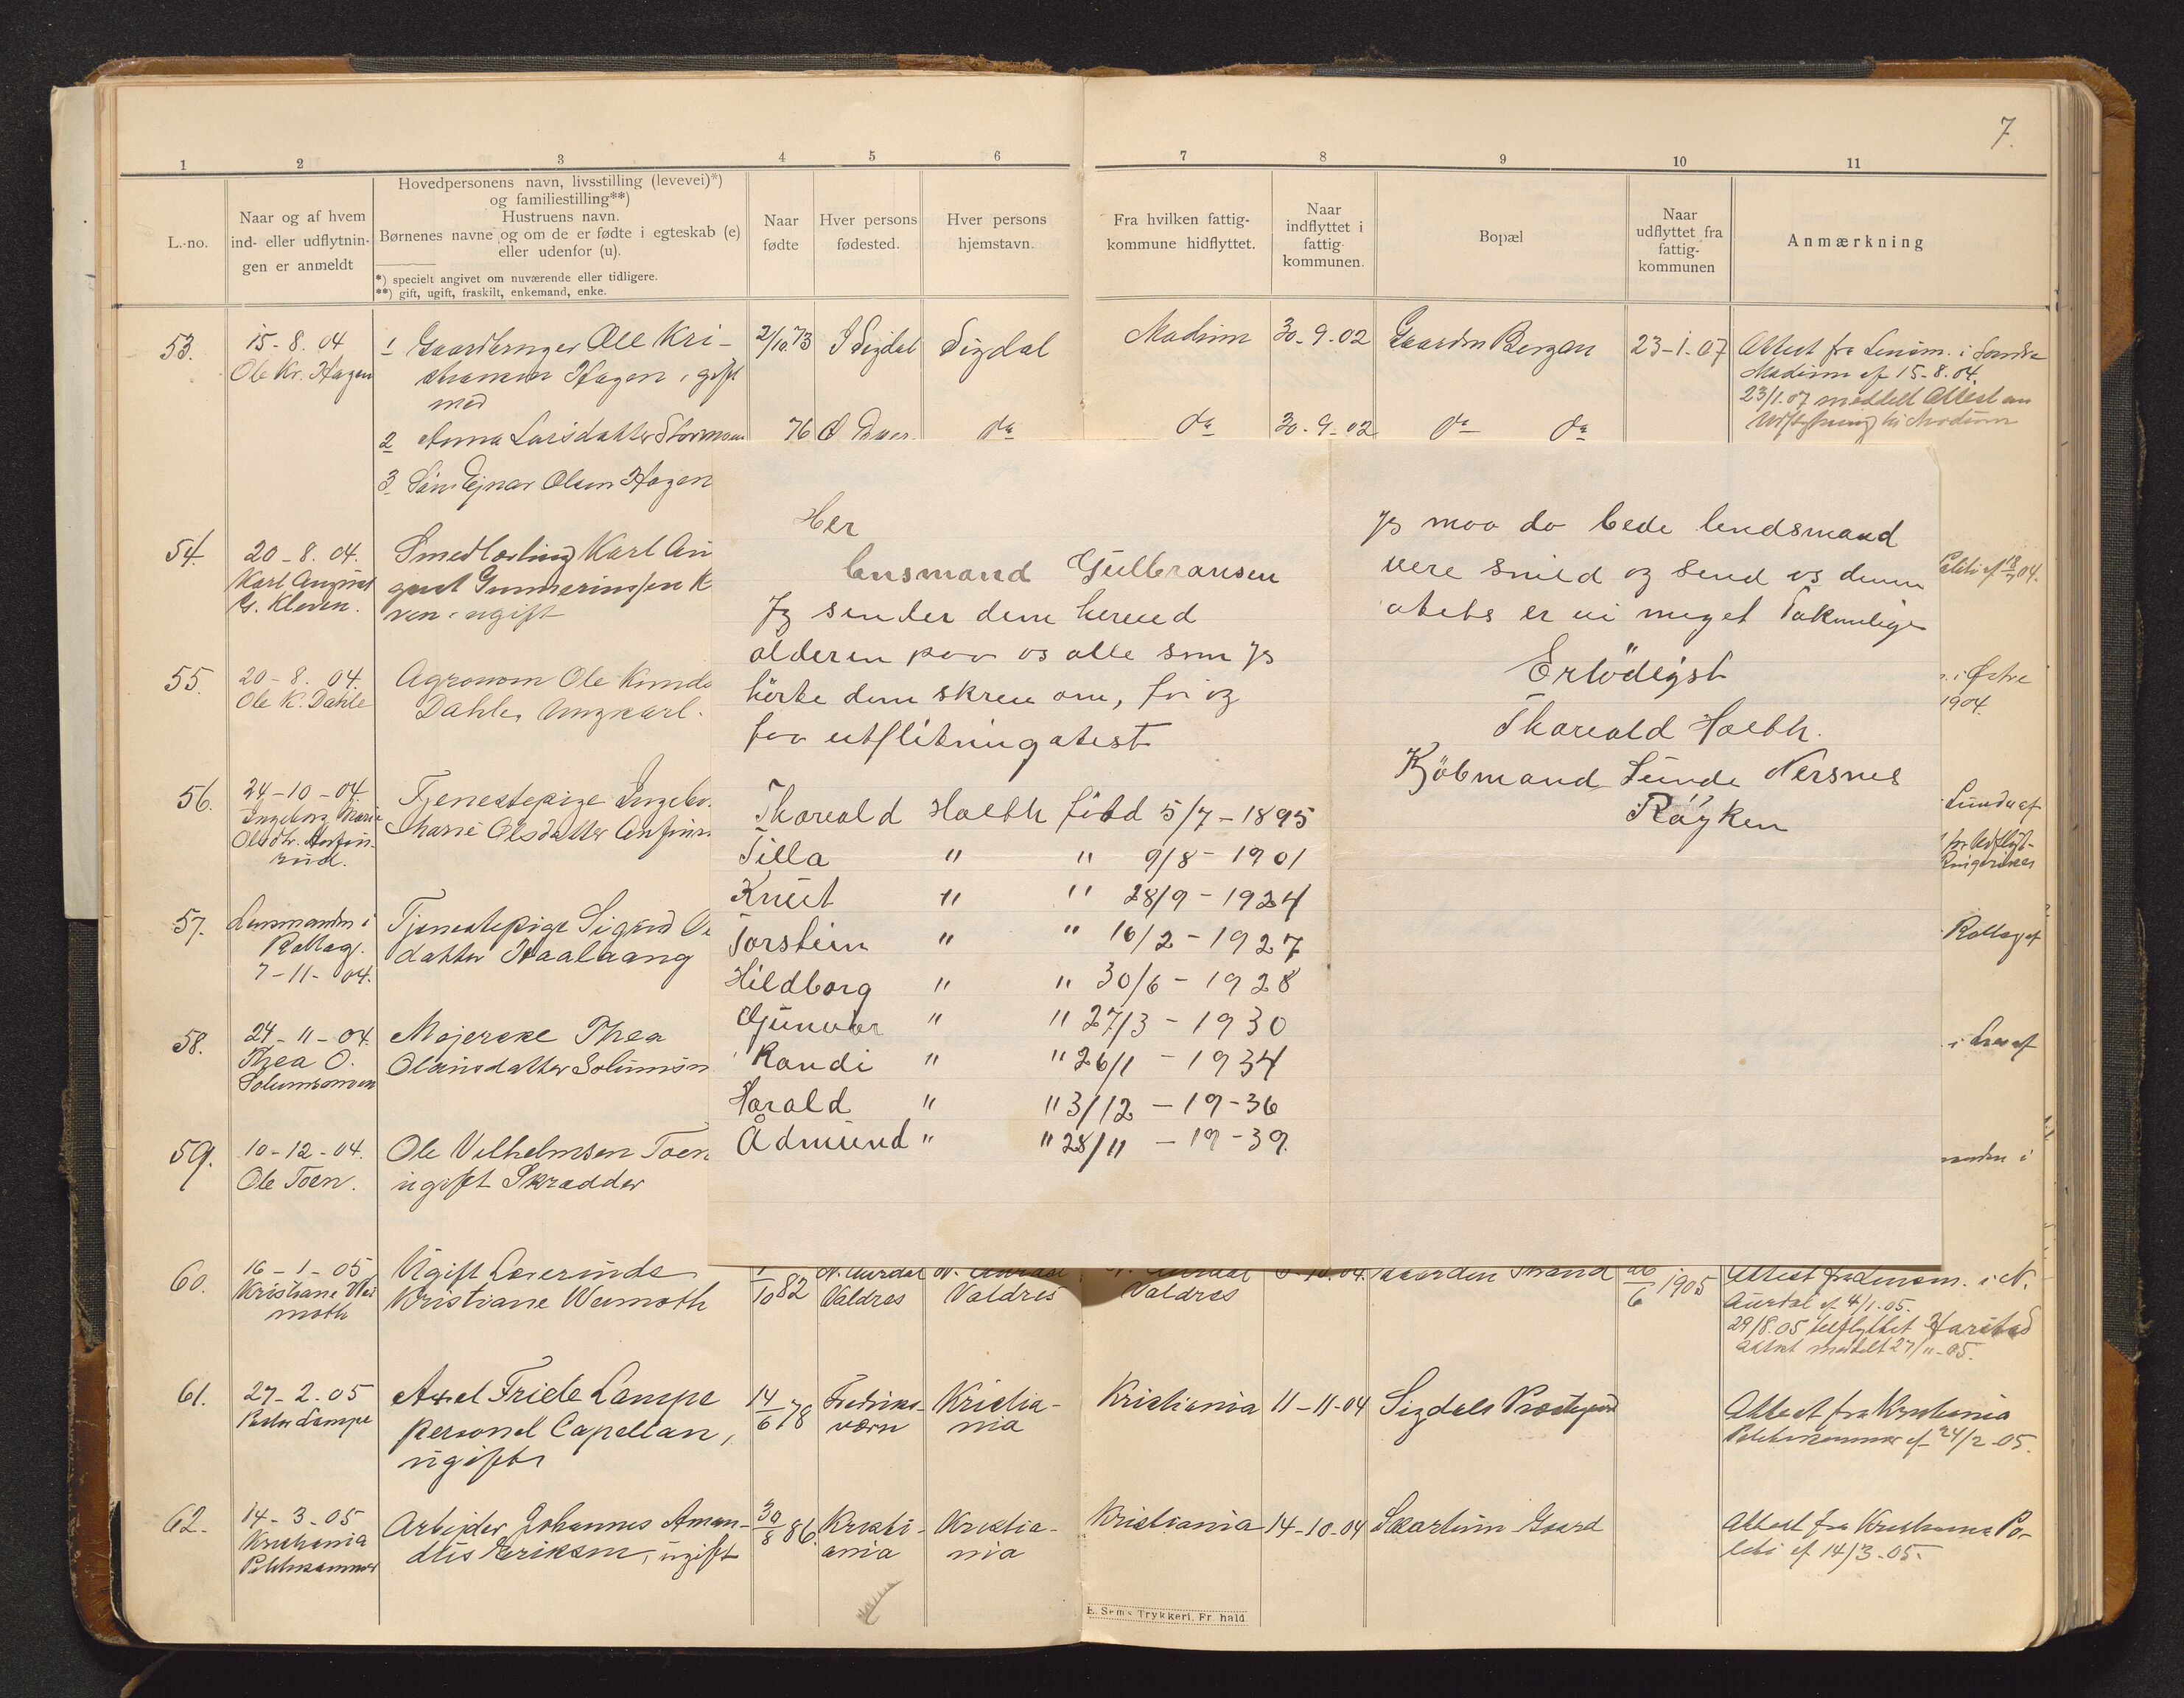 7.
1 2 3 4 5 6 7 8 9 10 11
L.-no.
Naar og af hvem
ind- eller udflytnin-
gen er anmeldt
Hovedpersonens navn, livsstilling (levevei)*)
og familiestilling**)
Hustruens navn.
Børnenes navne og om de er fødte i egteskab (e)
eller udenfor (u).
*) specielt angivet om nuværende eller tidligere.
**) gift, ugift, fraskilt, enkemand, enke.
Naar
fødte
Hver persons
fødested.
Hver persons
hjemstavn.
Fra hvilken fattig-
kommune hidflyttet.
Naar
indflyttet i
fattig-
kommunen.
Bopæl
Naar
udflyttet fra
fattig-
kommunen
Anmærkning
53.
15-8.04
Ole Kr. Hagen
1 Gaardbruger Ole Kri-
stiansen Hagen, gift
med
2/10.73
Sigdal
Sigdal
Modum
30-9.02
Gaarden Bergan
23-1.07
Attest fra Lensm. i Søndre
Modum af 15-8.04.
23/1.07 meddelt Attest om
Udflytning til Modum
2 Anna Larsdatter
76
do
do
30-9-02
do do
3 Søn Ejnar Olsen Hagen
54.
20-8.04.
Karl August
G. Kleven.
Smedlærling Karl Au
gust Gunneriussen K
ven, ugift
Politi af 18/04.
55.
20-8.04.
Ole K. Dahle
Agronom Ole Knuds
Dahle, Ungkarl.
i Østre
1904.
56.
24-10-04
Ingeborg Marie
Olsdtr. Anfin-
rud.
Tjenestepige Ingebor
Marie Olsdatter Anfinr
Lunde af
for Udflyt-
Ringerikes
57.
Lensmanden i
Rollag.
7-11-04.
Tjenestepige Sigrid
datter Haalaang
Rollag af
58.
24-11-04.
Thea O.
Solumsmoen
Mejerske Thea
Olausdatter Solumsm
59.
10-12-04.
Ole Toen.
Ole Vilhelmsen Toen
ugift Skrædder
60.
16-1-05
Kristiane Wei
moth
Ugift Lærerinde
Kristiane Weimoth
1/10 82
N. Aurdal
Valdres
N. Aurdal
Valdres
N. Aurdal
Valdres
Gaarden Strand
26/6 1905
Attest fra Lensm. i N.
Aurdal af 4/1.05.
29/8.05 tilflyttet Harstad
attest meddelt 27/11-05.
61.
27-2.05
Pastor Lampe
Axel Friele Lampe
personel Capellan,
ugift
14/6 78
Fredriks-
værn
Kristia-
nia
Kristiania
11-11-04
Sigdals Præstegaard
Attest fra Kristiania
Politikammer af 24/2-05.
62.
14-3-05
Kristiania
Politikammer
Arbejder Johannes Aman-
dus Eriksen, ugift
30/8 86.
Kristi-
ania
Kristia-
nia
Kristiania
14-10.04
Skartum Gaard
Attest fra Kristiania Po-
liti af 14/3-05.
E. Sems Trykkeri, Fr.hald
Her
lensmand Gulbransen
Jeg sender dem herved
alderen paa os alle som jeg
hørte dem skreu om, for og
faa utflitningatest
Thorvald Holth föd 5/7-1895
Tilla " " 9/8-1901
Knut " " 28/9-1924
Torstein " " 16/2-1927
Hildborg " " 30/6-1928
Gunvor " " 27/3-1930
Randi " " 26/1-1934
Harald " " 3/12-19-36
Ådmund " " 28/11-19-39.
Jeg maa da bede lendsmand
vere snild og send os denne
atets er vi meget Takmelige
Erbödigst
Thorvald Holth.
Kjöbmand Sunde Nersnes
Röyken